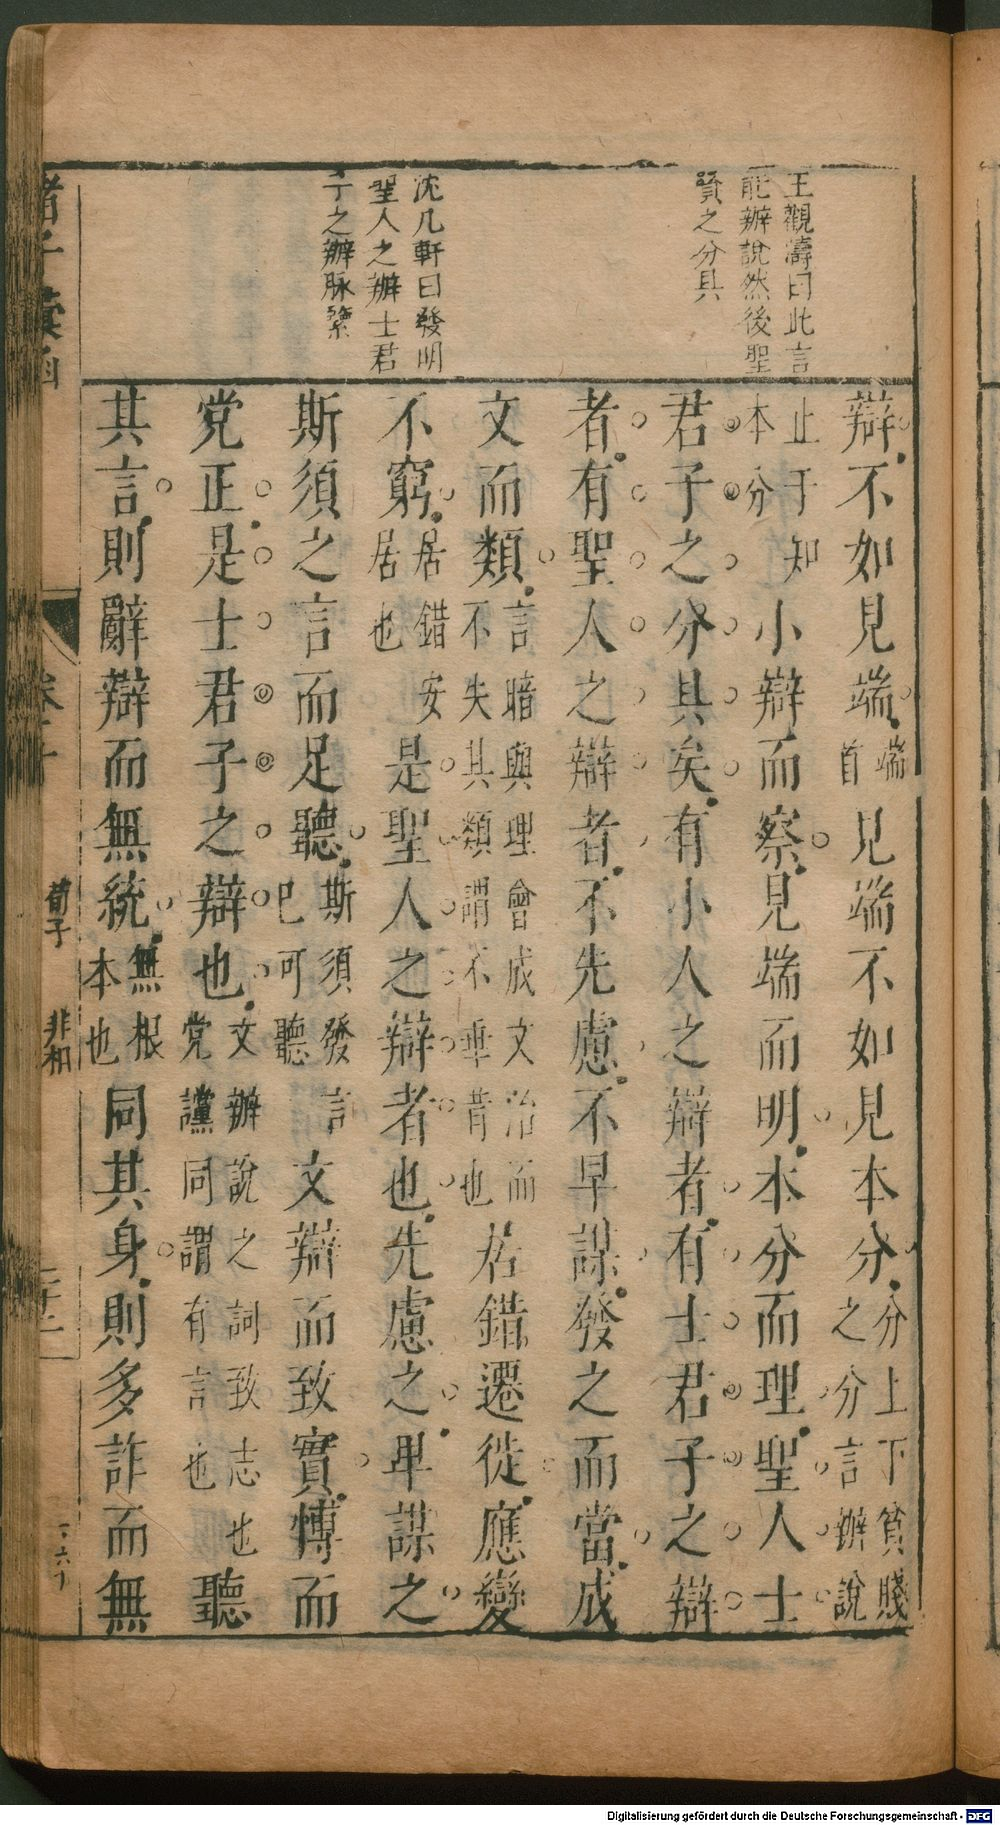 王觀濤曰此言
能辦說然後聖
賢之分具
沈几軒曰發明
聖人之辦士君
子之辦脉縈
辯不如見端端首見端不如見本分分上下貧賤之分言辦說
止于知本分小辯而察見端而明本分而理聖人士
君子之分具矣有小人之辯者有士君子之辯
者有聖人之辯者不先慮不早謀發之而當成
文而類言暗與理會成文治而不失其類謂不乖昔也居錯遷徙應變
不窮居錯安居也是聖人之辯者也先慮之早謀之
斯須之言而足聽斯須發言已可聽文辯而致實博而
党正是士君子之辯也文辦說之詞致志也党讜同謂有言也聽
其言則辭辯而無統無根本也同其身則多詐而無
諸子彙函
荀子
非相
二十二
Digitalisierung gefördert durch die Deutsche Forschungsgemeinschaft - DFG